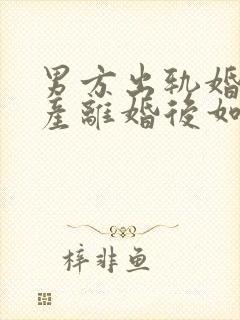 男方出軌婚
產離婚後如
梓非鱼